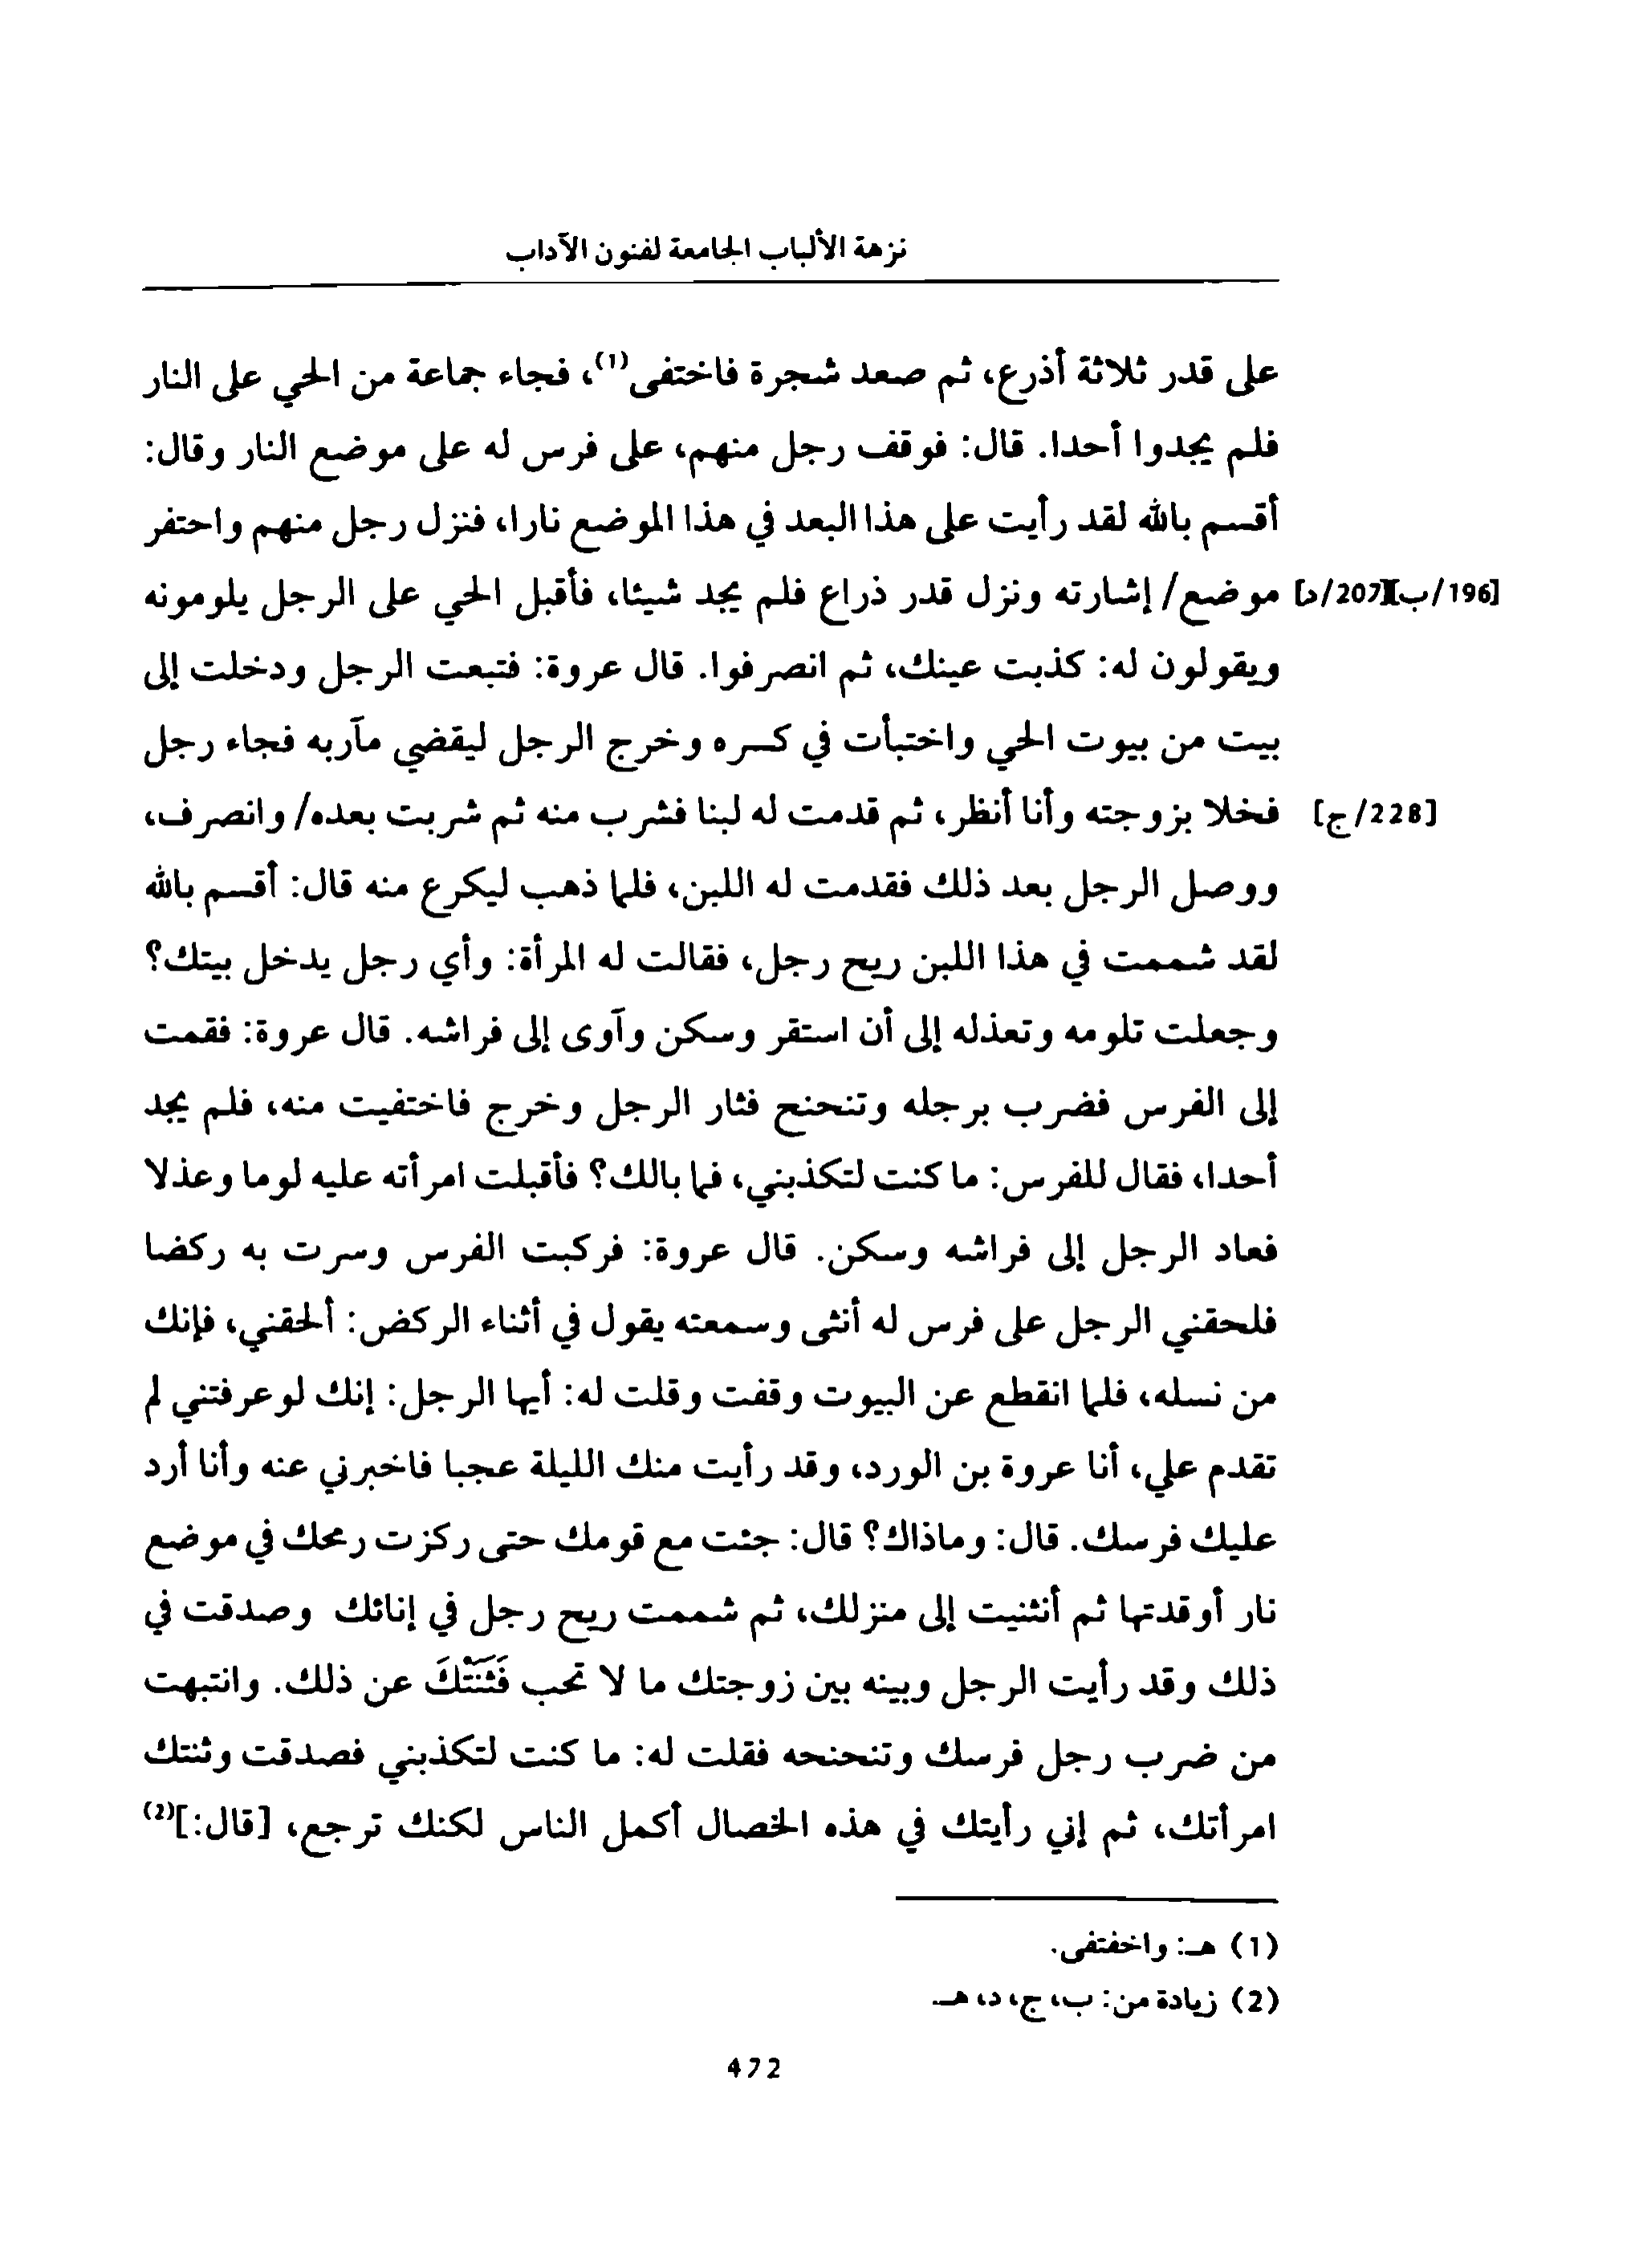 نزهة الألباب الجامعة لفنون الآداب
على قدر ثلاثة أذرع، ثم صعد شجرة فاختفى(1)، فجاء جماعة من الحي على النار
فلم يجدوا أحدا. قال: فوقف رجل منهم، على فرس له على موضع النار وقال:
أقسم بالله لقد رأيت على هذا البعد في هذا الموضع نارا، فنزل رجل منهم واحتفر
[196/ب][207/د] موضع/ إشارته ونزل قدر ذراع فلم يجد شيئا، فأقبل الحي على الرجل يلومونه
ويقولون له: كذبت عينك، ثم انصرفوا. قال عروة: فتبعت الرجل ودخلت إلى
بيت من بيوت الحي واختبأت في كسره وخرج الرجل ليقضي مآربه فجاء رجل
[228/ج] فخلا بزوجته وأنا أنظر، ثم قدمت له لبنا فشرب منه ثم شربت بعده/ وانصرف،
ووصل الرجل بعد ذلك فقدمت له اللبن، فلما ذهب ليكرع منه قال: أقسم بالله
لقد شممت في هذا اللبن ريح رجل، فقالت له المرأة: وأي رجل يدخل بيتك؟
وجعلت تلومه وتعذله إلى أن استقر وسكن وآوى إلى فراشه. قال عروة: فقمت
إلى الفرس فضرب برجله وتنحنح فثار الرجل وخرج فاختفيت منه، فلم يجد
أحدا، فقال للفرس: ما كنت لتكذبني، فما بالك؟ فأقبلت امرأته عليه لوما وعذلا
فعاد الرجل إلى فراشه وسكن. قال عروة: فركبت الفرس وسرت به ركضا
فلحقني الرجل على فرس له أنثى وسمعته يقول في أثناء الركض: ألحقني، فإنك
من نسله، فلما انقطع عن البيوت وقفت وقلت له: أيها الرجل: إنك لو عرفتني لم
تقدم علي، أنا عروة بن الورد، وقد رأيت منك الليلة عجبا فاخبرني عنه وأنا أرد
عليك فرسك. قال: وماذاك؟ قال: جئت مع قومك حتى ركزت رمحك في موضع
نار أوقدتها ثم أنثنيت إلى منزلك، ثم شممت ريح رجل في إنائك وصدقت في
ذلك وقد رأيت الرجل وبينه بين زوجتك ما لا تحب فَثَنَتْكَ عن ذلك. وانتبهت
من ضرب رجل فرسك وتنحنحه فقلت له: ما كنت لتكذبني فصدقت وثنتك
امرأتك، ثم إني رأيتك في هذه الخصال أكمل الناس لكنك ترجع، [قال:](2)
(1) هـ: واخفتفى.
(2) زيادة من: ب، ج، د، هـ.
472